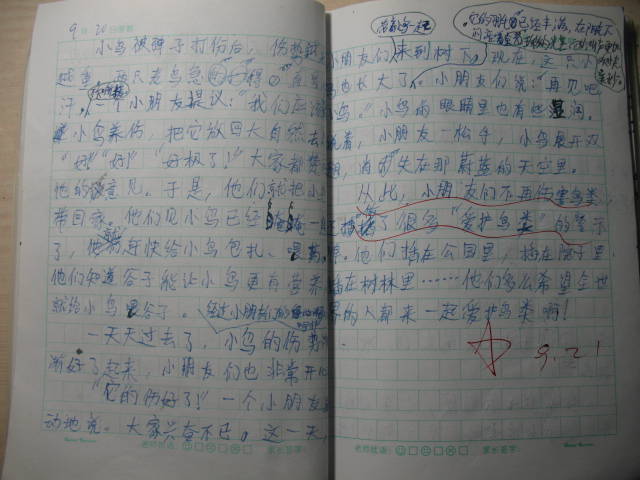 9月20日星期
小鸟被弹子打伤后，伤势越
越重，两只老鸟急
汗。一个小朋友提议：“我们应
小鸟养伤，把它放回大自然去
“好！”“好！”“好极了！”大家都赞
他的意见。于是，他们就把小
带回家。他们见小鸟已经奄奄一
了，他们赶快给小鸟包扎、喂药
他们知道谷子能让小鸟更有营养
就给小鸟喂谷了。
一天天过去了，小鸟的伤势
渐好了起来，小朋友们也非常开
“它的伤好了！”一个小朋友
动地说。大家兴奋不已。这一天，
老师批语：
家长签字：
带着鸟一起
小朋友们来到树下。现在，这只小
鸟也长大了。小朋友们说：“再见吧
小鸟。”小鸟的眼睛里也有些湿润。
说着，小朋友一松手，小鸟展开双
翅，消失在那蔚蓝的天空里。
从此，小朋友们不再伤害鸟类，
还插了很多“爱护鸟类”的警示
牌。他们插在公园里，插在院子里
插在树林里……他们多么希望全世
界的人都来一起爱护鸟类啊！
9.21
老师批语：
家长签字：